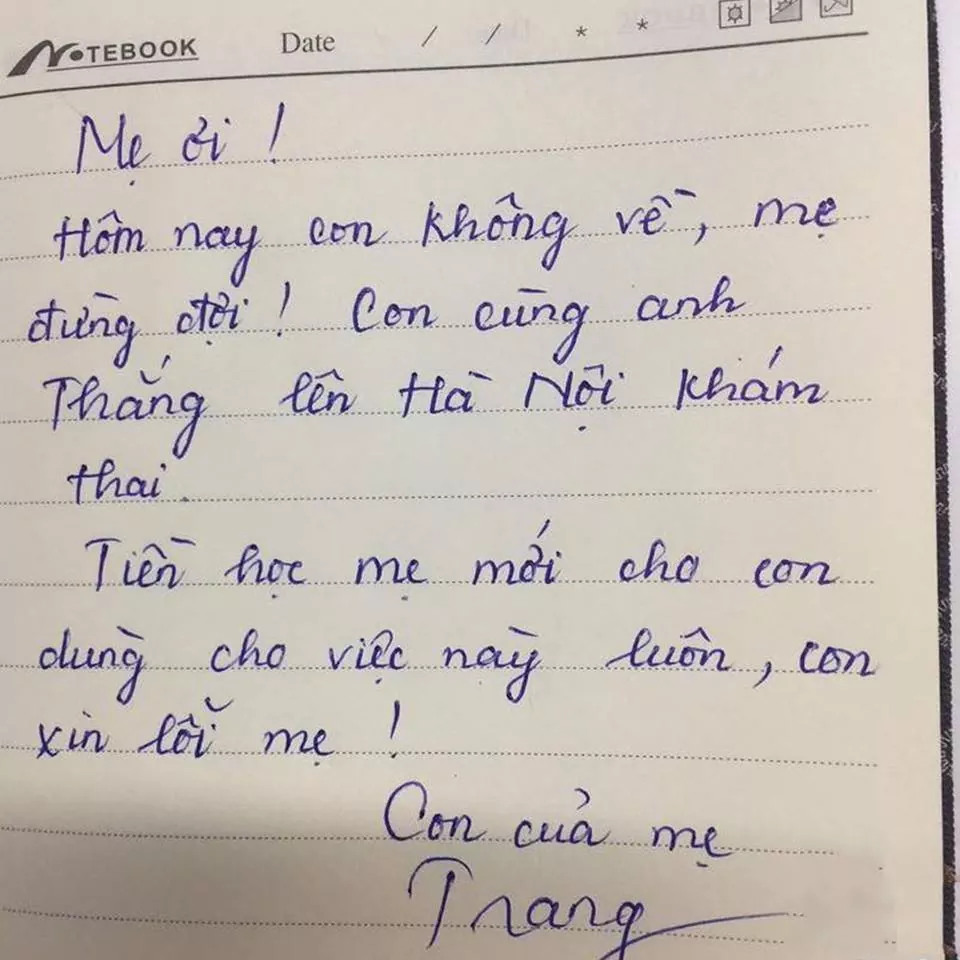 NOTEBOOK Date / / * *
Mẹ ơi !
Hôm nay con không về, mẹ
đừng đợi ! Con cùng anh
Thắng lên Hà Nội khám
thai.
Tiền học mẹ mới cho con
dùng cho việc này luôn, con
xin lỗi mẹ !
Con của mẹ
Trang